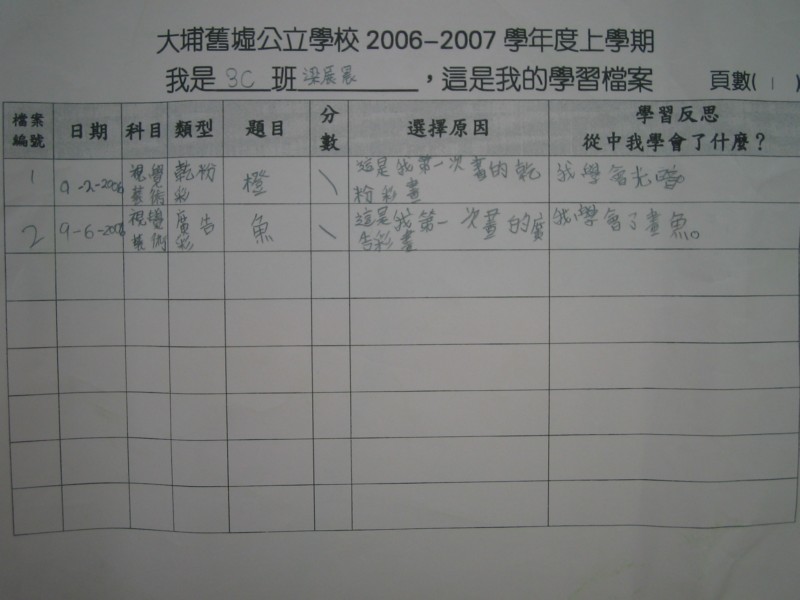 大埔舊墟公立學校 2006-2007 學年度上學期
我是 3C 班 梁 ，這是我的學習檔案 頁數( 1 )
檔案編號 日期 科目 類型 題目 分數 選擇原因 學習反思 從中我學會了什麼？
1 9-2-2006 視覺藝術 乾粉彩 橙 \ 這是我第一次畫的乾粉彩畫 我學會光暗
2 9-6-2006 視覺藝術 廣告彩 魚 \ 這是我第一次畫的廣告彩畫 我學會了畫魚。